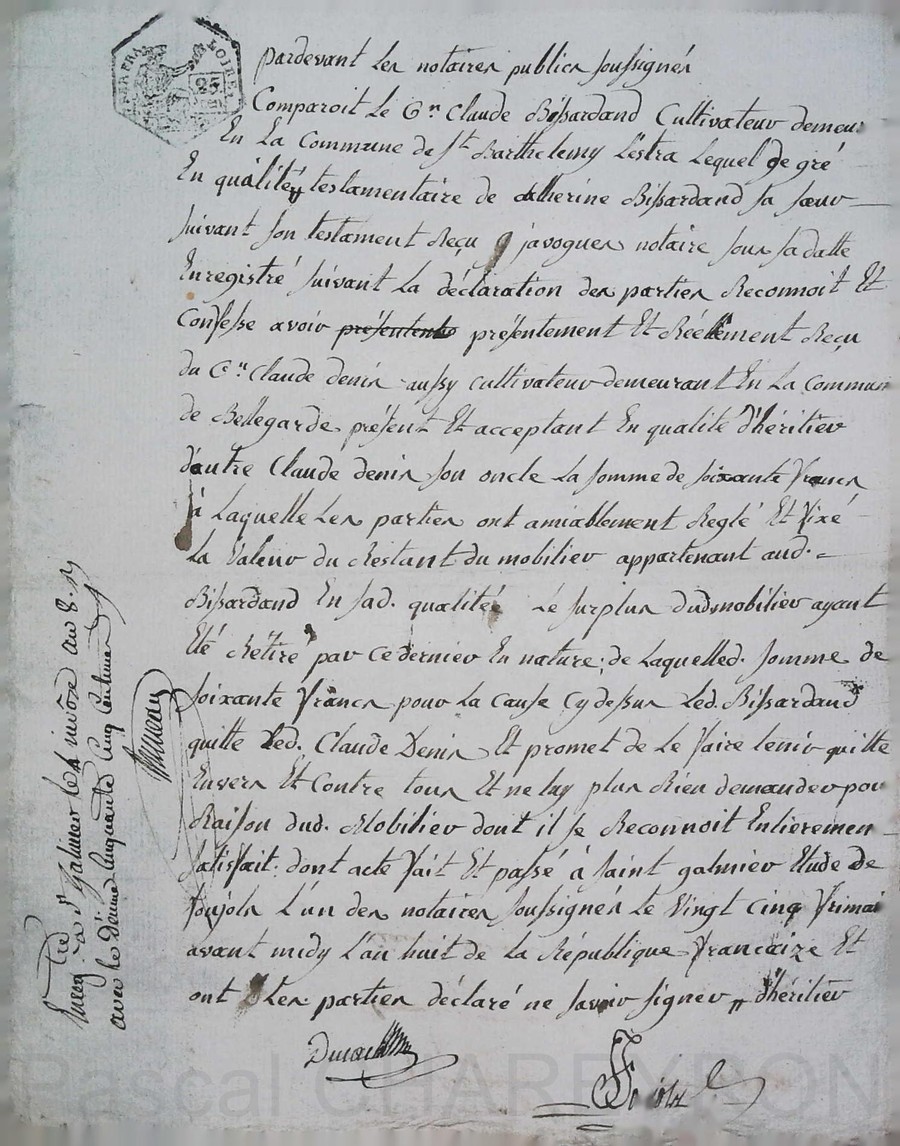 pardevant les notaires publics soussignés
Comparoit Le Cen. Claude Bissardand Cultivateur demeur
En La Commune de St. Barthelemy Lestra Lequel de gré
En qualité testamentaire de Catherine Bissardand sa sœur
suivant son testament Reçu javogues notaire sous sa datte
Enregistré suivant La déclaration des parties Reconnoit Et
Confesse avoir présentement Et Réellement Reçu
du Cen. Claude denis aussy cultivateur demeurant En La Commun
de Bellegarde présent Et acceptant En qualité d'héritier
d'autre Claude denis son oncle La somme de soixante francs
à Laquelle Les parties ont amiablement Reglé Et fixé
La Valeur du Restant du mobilier appartenant aud.
Bissardand En sad. qualité Le surplus dud mobilier ayant
Eté Rétiré par ce dernier En nature; de Laquelled. somme de
soixante francs pour La Cause Cy dessus Led. Bissardand
quitte Led. Claude Denis Et promet de Le faire tenir quitte
Envers Et Contre tous Et ne luy plus Rien demander pour
Raison dud. Mobilier dont il se Reconnoit Entieremen
satisfait: dont acte fait Et passé à saint galmier Etude de
foujols L'un des notaires soussignés Le Vingt cinq frimai
avant midy L'an huit de La République francaize Et
ont Les parties déclaré ne savoir signer d'héritier
Enregtré à St. Galmier le nivôse an 8. R
avec le deuxe cinquante cinq centimes
PAR FRA
LOIRE
25
Pascal CHAREYRON